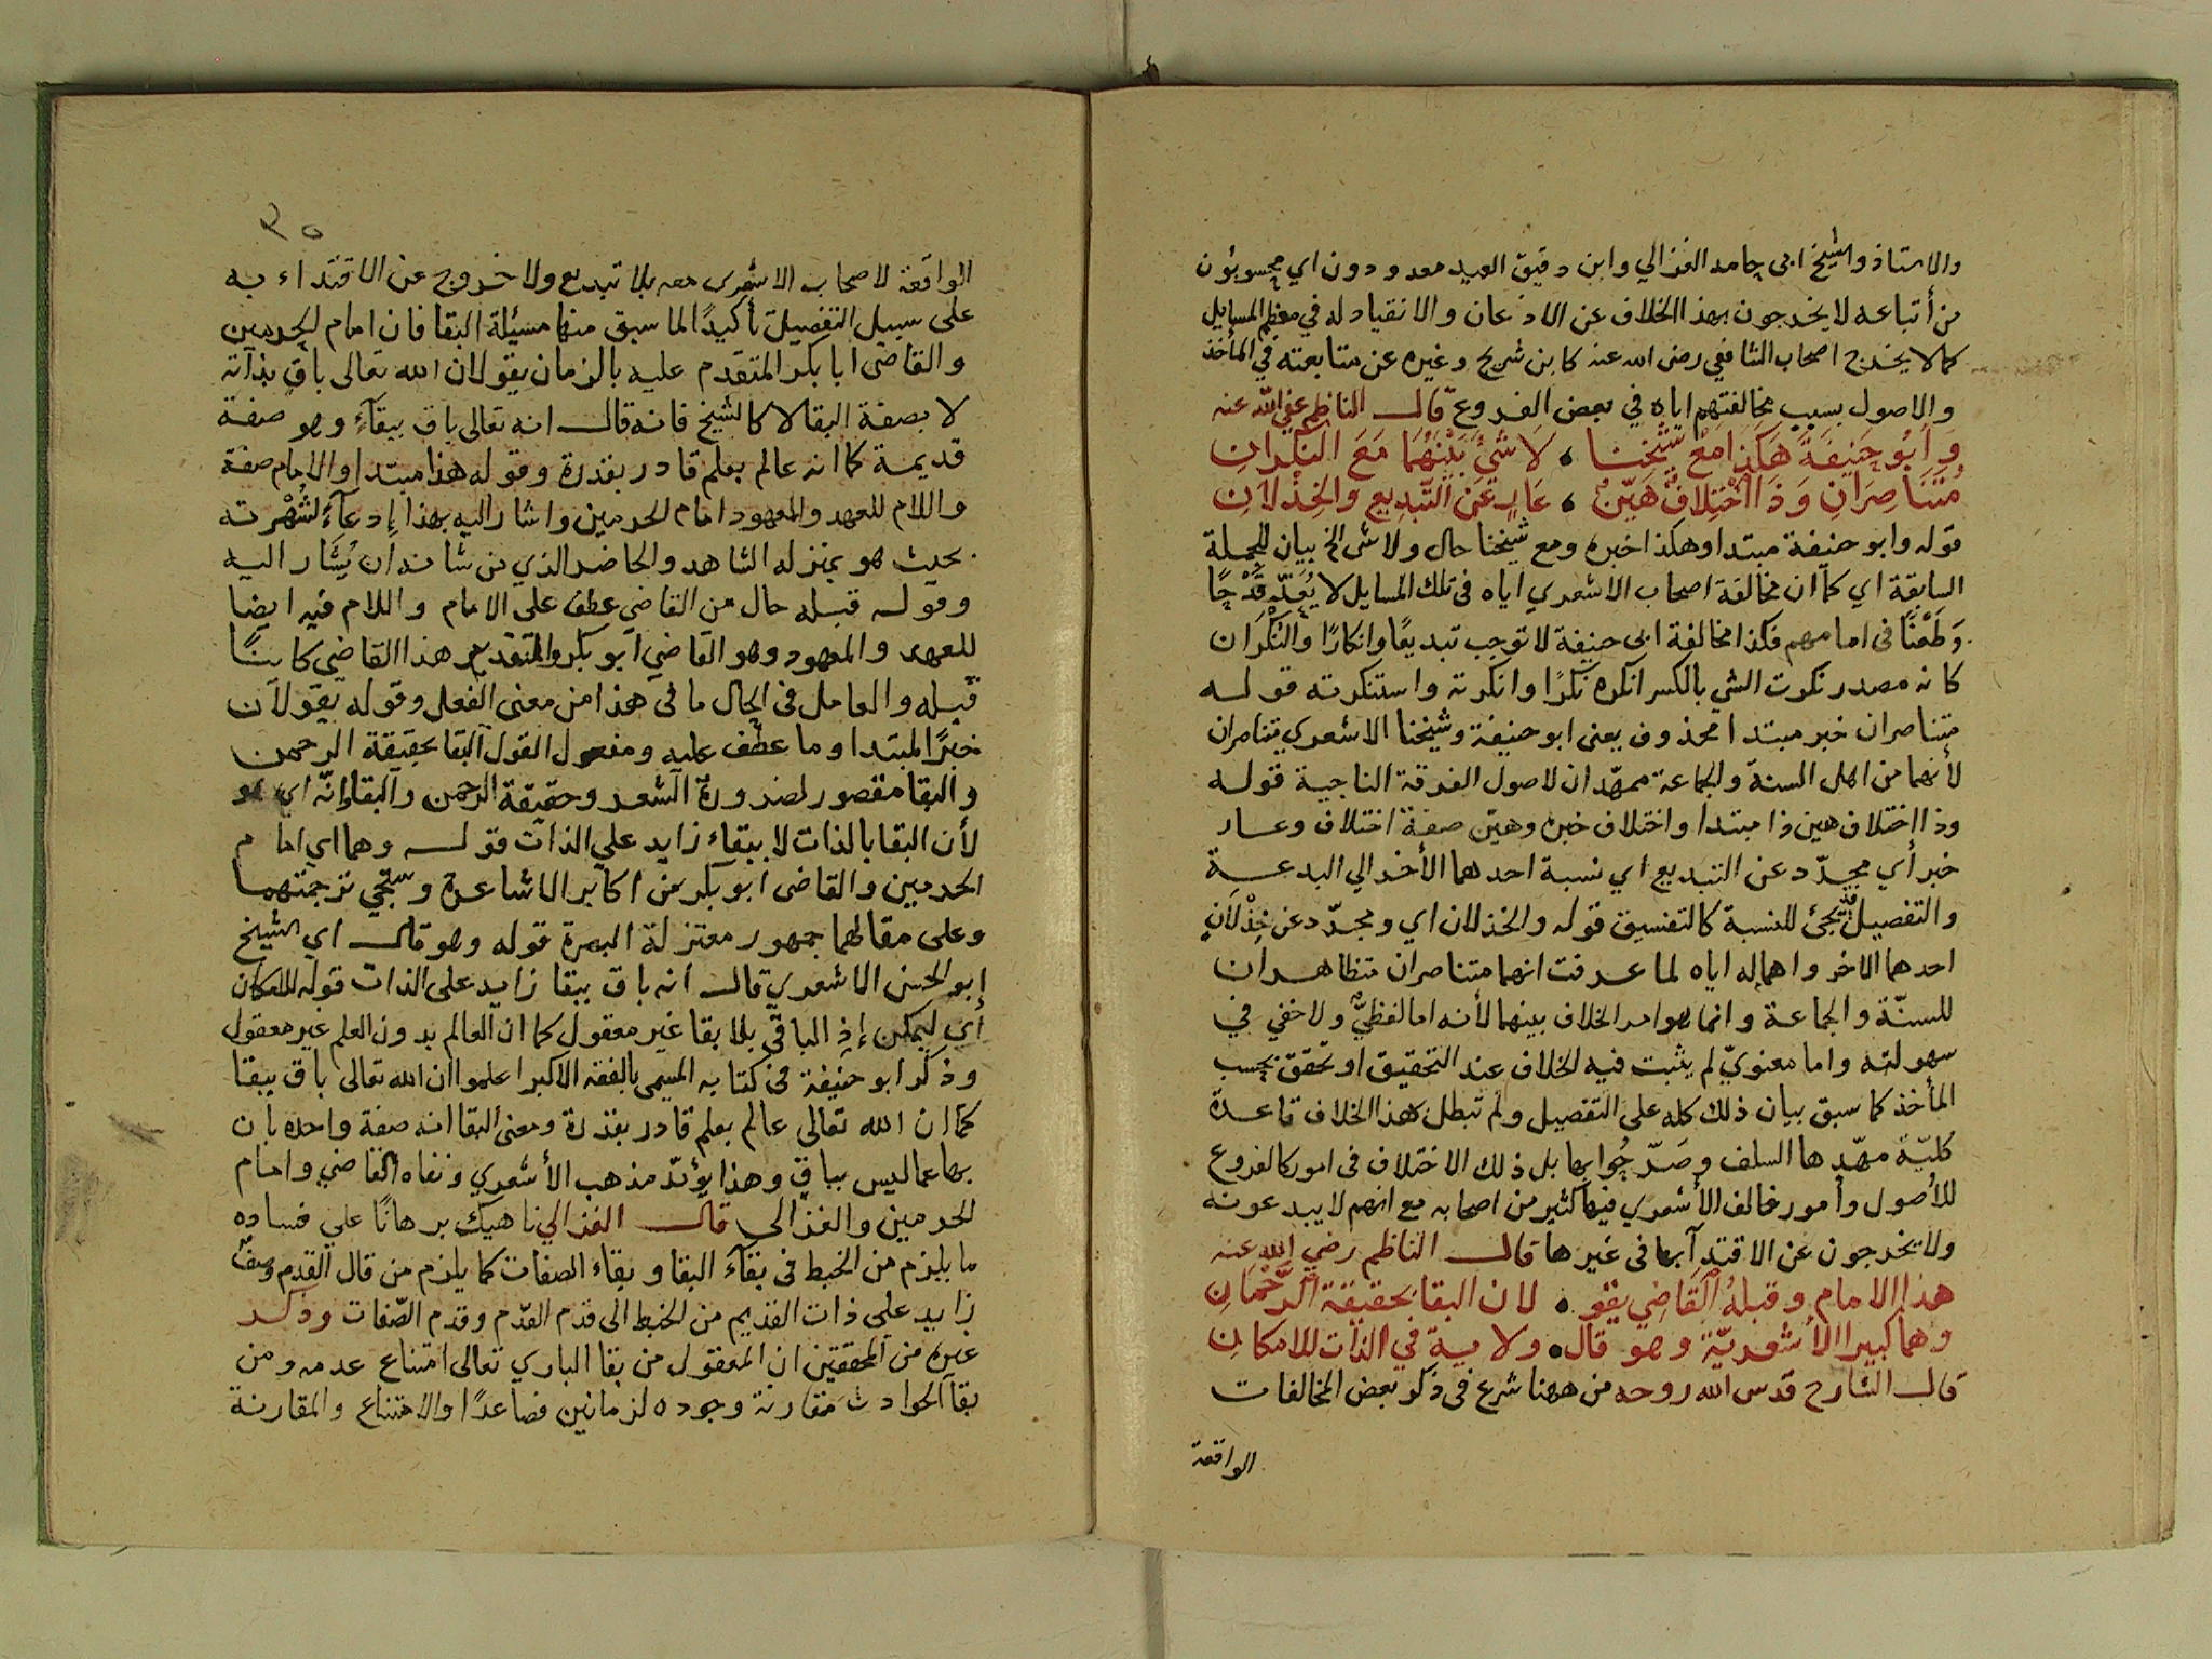 والاستاذ والشيخ ابى حامد الغزالي وابن دقيق العيد معدودون اي محسوبون
من أتباعه لا يخرجون بهذا الخلاف عن الاذعان والانقياد له في معظم المسايل
كما لا يخرج اصحاب الشافعي رضى الله عنه كابن شريح وغيره عن متابعته في المأخذ
والاصول بسبب مخالفتهم اياه في بعض الفروع قال الناظم عفى الله عنه
وَأبُو حَنِيفَةَ هَكَذَا مَعْ شَيْخِنَا ، لَا شَيْءَ بَيْنَهُمَا مَعَ النَكَرانِ
مُتَنَاصِرَانِ وَذَا اخْتِلافٌ هَيِّنٌ ، عَارٍ عَنِ التَّبدِيعِ والخِذْلَانِ
قوله وابو حنيفة مبتدا وهكذا خبره ومع شيخنا حال ولا شى الخ بيان للجملة
السابقة اي كما ان مخالفة اصحاب الاشعري اياه فى تلك المسايل لا يُعَدّ قَدْحًا
وَطَعْنًا فى امامهم فكذا مخالفة ابى حنيفة لا توجب تبديعًا وانكارًا والنُكْرَان
كانه مصدر نكرت الشي بالكسر انكره نكرًا وانكرته واستنكرته قوله
متناصران خبر مبتدا محذوف يعنى ابو حنيفة وشيخنا الاشعري يتناصران
لأنهما من اهل السنة والجماعة ممهّدان لاصول الفرقة الناجية قوله
وذا اختلاف هين ذا مبتدا واختلاف خبره وهيّن صفة اختلاف وعار
خبر أي مجرّد عن التبديع اي نسبة احدهما الأخر الي البدعة
والتفصيل قد يجئ للنسبة كالتفسيق قوله والخذلان اي ومجرّد عن خِذْلَانِ
احدهما الاخر واهماله اياه لما عرفت انهما متناصران متظاهران
للسنّة والجماعة وانما هو امر الخلاف بينهما لأنه اما لفظيٌّ ولا خفي في
سهولته واما معنويّ لم يثبت فيه الخلاف عند التحقيق او تحقق بحسب
المأخذ كما سبق بيان ذلك كله على التفصيل ولم تبطل هذا الخلاف قاعدة
كليّة مهّدها السلف وصَرّحُوا بها بل ذلك الاختلاف فى امور كالفروع
للأصول وأمور خالف الأشعري فيها كثير من اصحابه مع انهم لا يبدعونه
ولا يخرجون عن الاقتدآ بها فى غيرها قال الناظم رضي الله عنه
هذا الامام وقبلهُ القَاضِي يقو ، لان البقا بحقيقة الرَّحْمَانِ
وهما كبيرا الأشعريّة وهو قال ، ولا مية في الذات للامكانِ
قال الشارح قدس الله روحه من ههنا شرع فى ذكر بعض المخالفات
الواقعة
٢٥
الواقعة لاصحاب الاشعرى معه بلا تبديع ولا خروج عن الاقتداء به
على سبيل التفصيل تأكيدًا لما سبق منها مسئيلة البقا فان امام الحرمين
والقاضى ابا بكر المتقدم عليه بالزمان يقولان الله تعالى باق بذاته
لا بصفة البقا لا كالشيخ فانه قال انه تعالى باق ببقآءٍ وهو صفة
قديمة كما انه عالم بعلم قادر بقدرة وقوله هذا مبتدا والامام صفة
واللام للعهد والمعهود امام الحرمين واشار اليه بهذا إدعآءً لشُهْرته
بحيث هو بمنزله الشاهد والحاضر الذي من شانه ان يُشَار اليه
وقوله قبله حال من القاضي عطف على الامام واللام فيه ايضا
للعهد والمعهود وهو القاضي ابو بكر والتقدير هذا القاضي كاينًا
قبله والعامل فى الحال ما فى هذا من معنى الفعل وقوله يقولان
خبرًا لمبتدا وما عطف عليه ومفعول القول البقا بحقيقة الرحمن
والبقا مقصور لضرورة الشعر وحقيقة الرحمن والبقا إنّه اي هو
لأن البقا بالذات لا ببقاء زايد على الذات قوله وهما اي امام
الحرمين والقاضى ابو بكر من اكابر الاشاعرة وستجي ترجمتهما
وعلى مقالهما جمهور معتزلة البصرة قوله وهو قال اي الشيخ
ابو الحسن الاشعري قال انه باق ببقا زايد على الذات قوله للامكان
أي ليمكن إذ الباقي بلا بقا غير معقول كما ان العالم بدون العلم غير معقول
وذكر ابو حنيفة في كتابه المسمى بالفقه الاكبر اعلموا ان الله تعالى باق ببقا
كما ان الله تعالى عالم بعلم قادر بقدرة ومعنى البقا انه صفة واحده بان
بها عما ليس بباق وهذا يؤيّد مذهب الأشعري ونفاه القاضي وامام
الحرمين والغزالى قال الغزالي ناهيك برهانًا على فساده
ما يلزم من الخبط فى بقآء البقا وبقاء الصفات كما يلزم من قال القدم وصفٌ
زايد على ذات القديم من الخبط الى قدم القدم وقدم الصّفات وذكر
غيره من المحققين ان المعقول من بقا الباري تعالى امتناع عدمه ومن
بقآ الحوادث مقارنة وجوده لزمانين فصاعدًا والامتناع والمقارنة